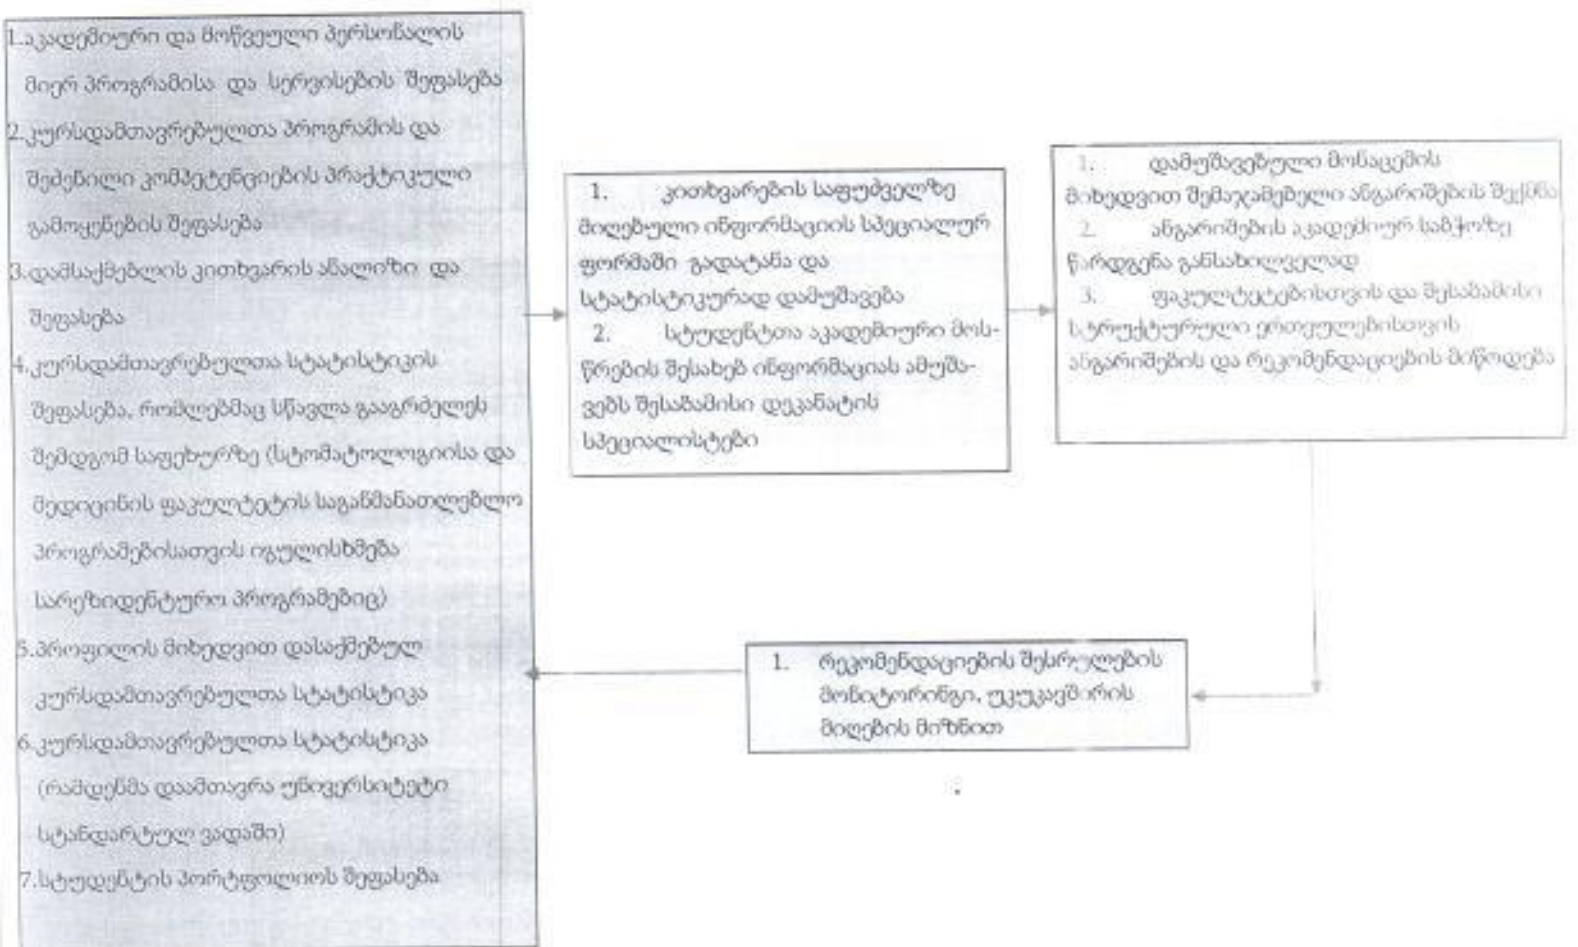 1.აკადემიური და მოწვეული პერსონალის
მიერ პროგრამისა და სერვისების შეფასება
2.კურსდამთავრებულთა პროგრამის და
შეძენილი კომპეტენციების პრაქტიკული
გამოყენების შეფასება
3.დამსაქმებლის კითხვარის ანალიზი და
შეფასება
4.კურსდამთავრებულთა სტატისტიკის
შეფასება, რომლებმაც სწავლა გააგრძელეს
შემდგომ საფეხურზე (სტომატოლოგიისა და
მედიცინის ფაკულტეტის საგანმანათლებლო
პროგრამებისათვის იგულისხმება
სარეზიდენტურო პროგრამებიც)
5.პროფილის მიხედვით დასაქმებულ
კურსდამთავრებულთა სტატისტიკა
6.კურსდამთავრებულთა სტატისტიკა
(რამდენმა დაამთავრა უნივერსიტეტი
სტანდარტულ ვადაში)
7.სტუდენტის პორტფოლიოს შეფასება
1. კითხვარების საფუძველზე
მიღებული ინფორმაციის სპეციალურ
ფორმაში გადატანა და
სტატისტიკურად დამუშავება
2. სტუდენტთა აკადემიური მოს-
წრების შესახებ ინფორმაციას ამუშა-
ვებს შესაბამისი დეკანატის
სპეციალისტები
1. დამუშავებული მონაცემის
მიხედვით შემაჯამებელი ანგარიშების შექმნა
2. ანგარიშების აკადემიურ საბჭოზე
წარდგენა განსახილველად
3. ფაკულტეტებისთვის და შესაბამისი
სტრუქტურული ერთეულებისთვის
ანგარიშების და რეკომენდაციების მიწოდება
1. რეკომენდაციების შესრულების
მონიტორინგი, უკუკავშირის
მიღების მიზნით